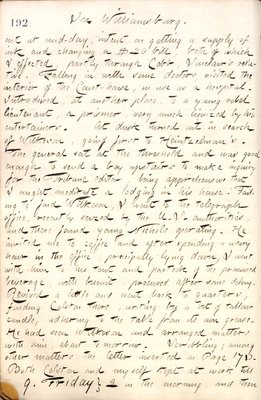 192 Near Williamsburg.
out at mid-day, intent on getting a supply of
ink and changing a $20 bill, both of which
I effected, partly through Cobb Sinclair's rela-
tive. Falling in with some doctors visited the
interior of the Court house, in use as a hospital.
Introduced at another place, to a young rebel
lieutenant, a prisoner very much lionized by his
entertainers. At dusk turned out in search
of Wilkeson, going first to Heintzelman's.
The general sat at the threshold and was good
enough to send a boy upstairs to make inquiry
for the Tribune editor, being apprehensive that
I might meditate a lodging in his house. Fail-
ing to find Wilkeson, I went to the telegraph
office, recently seized by the U. S. authorities,
and there found young Nichols operating. He
invited me to coffee and after spending a weary
hour in the office, principally lying down, I went
with him to his tent and partook of the promised
beverage, with biscuit procured after some delay.
Revived a little and went back to quarters,
finding Colston there writing by a bit of tallow
candle, adhering to the table from its own grease.
He had seen Wilkeson and arranged matters
with him, about to-morrow. Scribbling, among
other matters, the letter inserted on Page 175.
Both Colston and myself kept at work till
9. Friday } 2 in the morning, and then